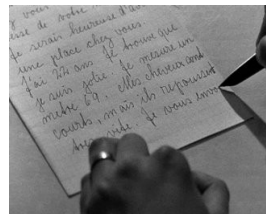 y vous
esse de votre
je serais heureuse d'a
une place chez vous
J'ai 22 ans. Je trouve que
je suis jolie. Je mesure un
mètre 69. Mes cheveux sont
courts, mais ils repoussent
très vite. Je vous envo